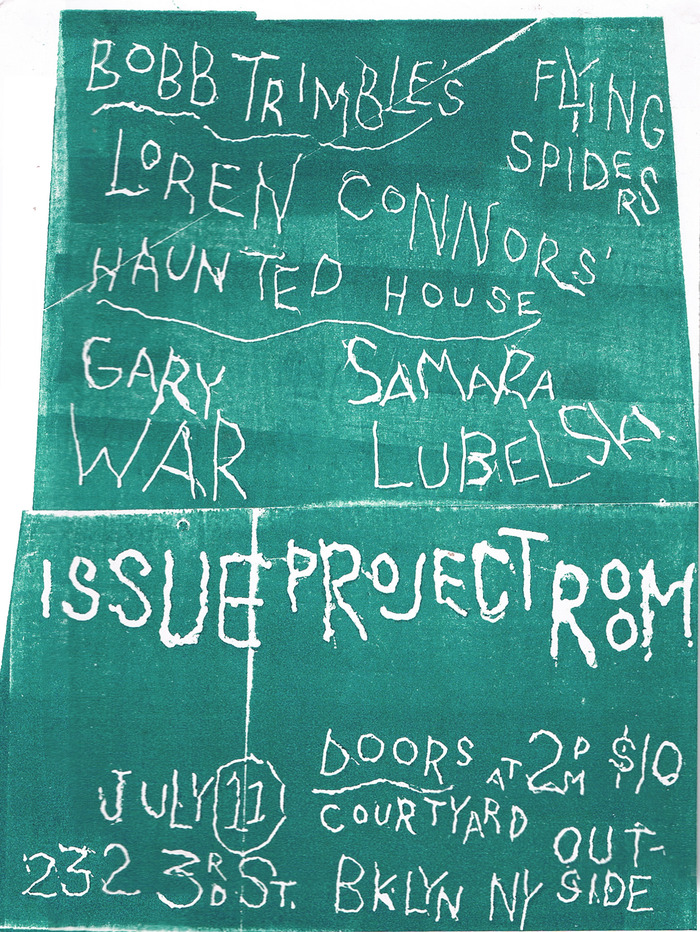 BOBB TRIMBLE'S
FLYING
SPIDE
RS
LOREN CONNORS'
HAUNTED HOUSE
GARY
WAR
SAMARA
LUBELSKI
ISSUE PROJECT ROOM
JULY 11
DOORS AT 2PM $10
COURTYARD
OUT-
SIDE
232 3RD ST. BKLYN NY